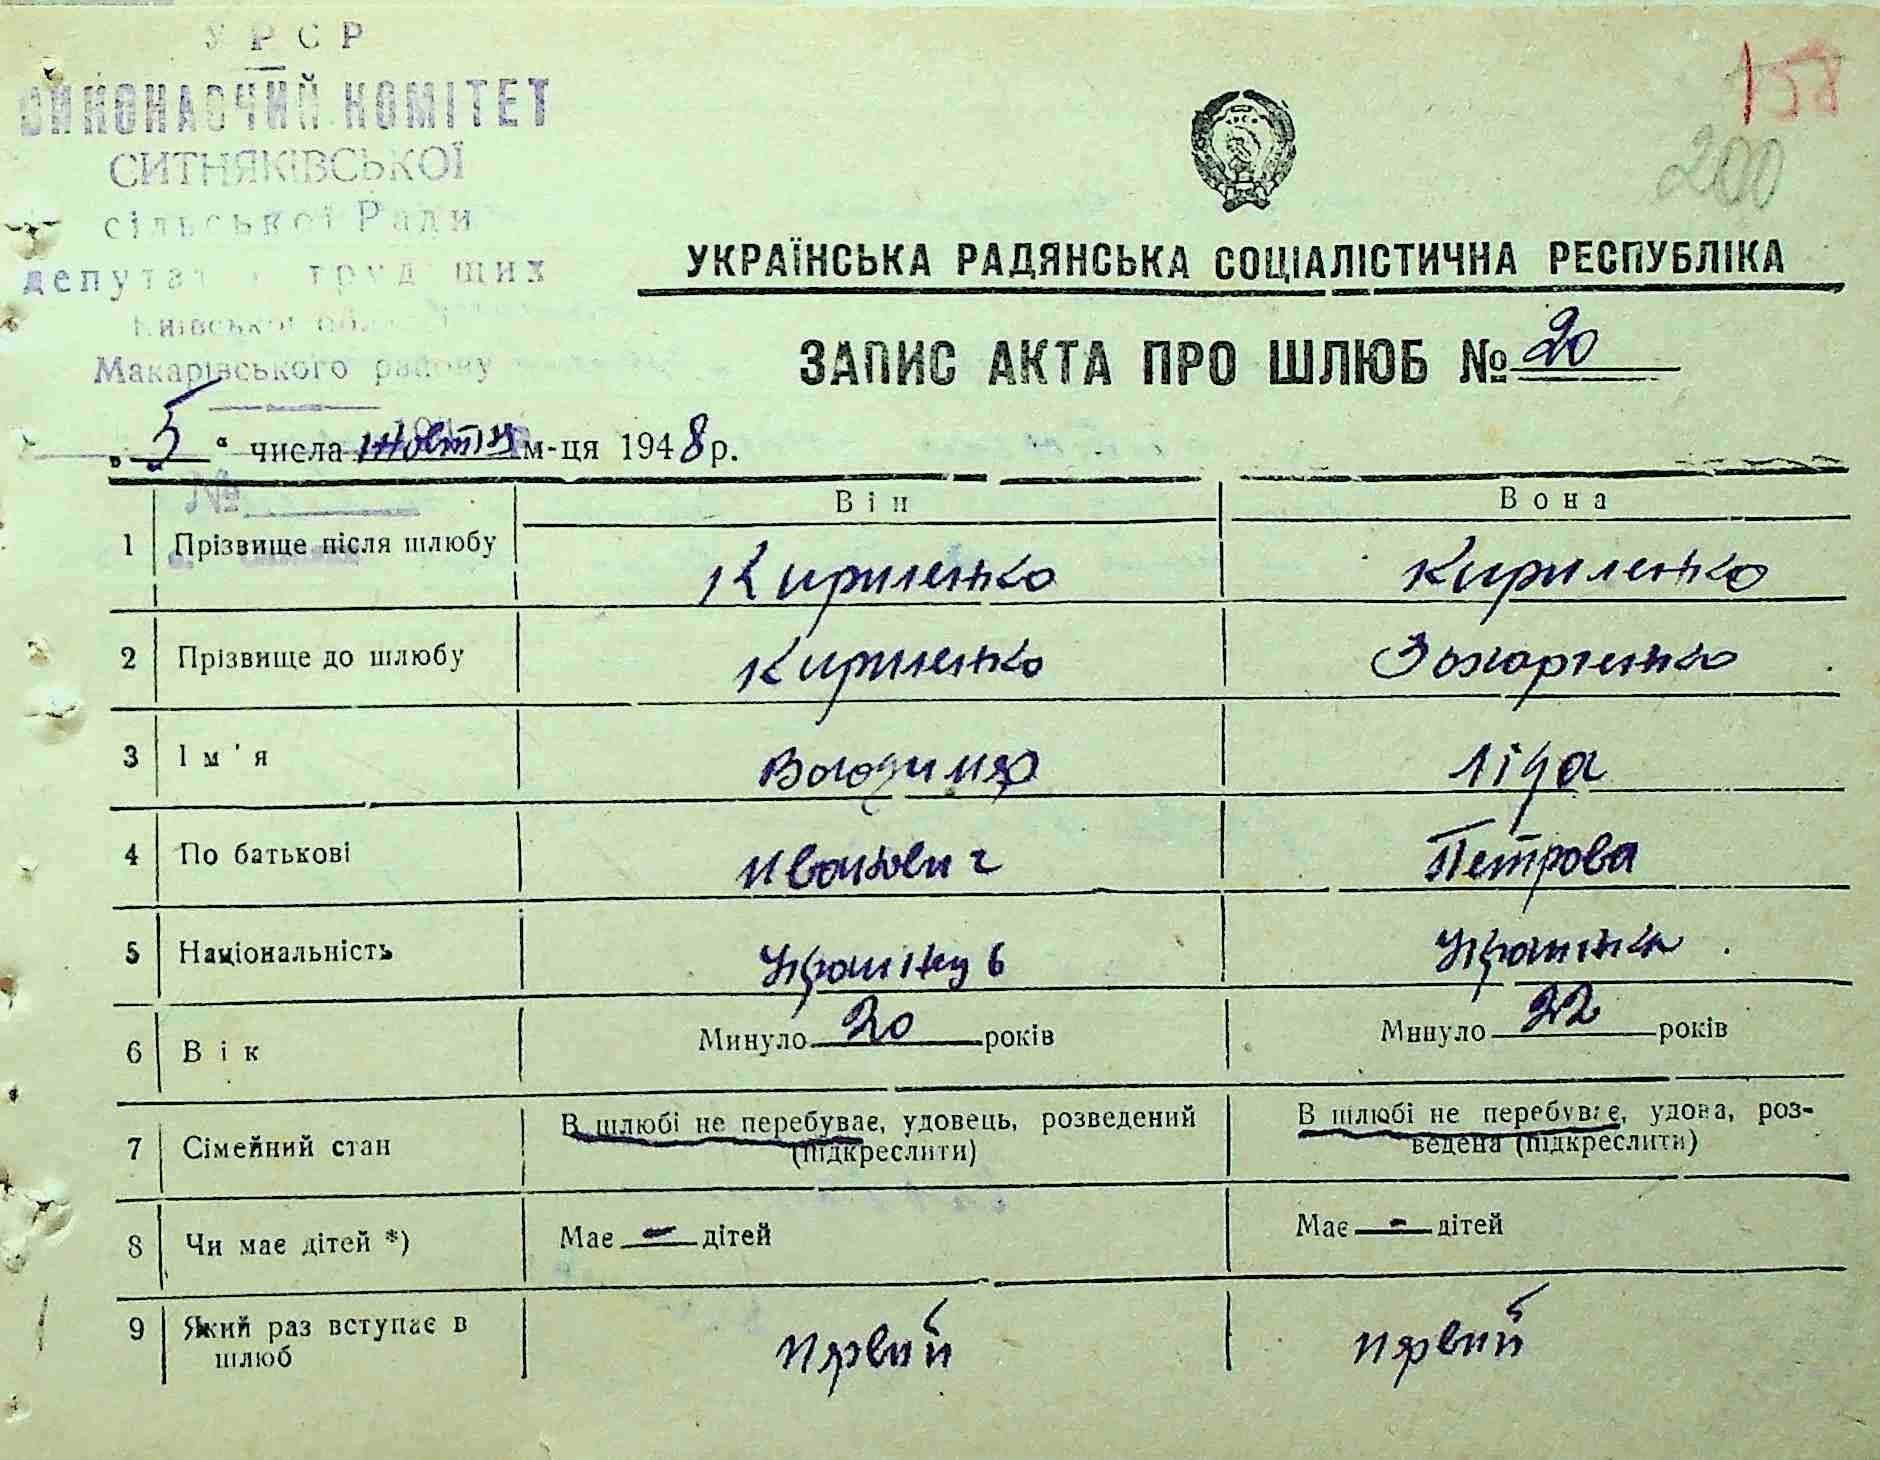 УРСР
ВИКОНАВЧИЙ КОМІТЕТ
СИТНЯКІВСЬКОЇ
сільської Ради
депутатів трудящих
Київської області
Макарівського району
158
200
УКРАЇНСЬКА РАДЯНСЬКА СОЦІАЛІСТИЧНА РЕСПУБЛІКА
ЗАПИС АКТА ПРО ШЛЮБ № 20
„5“ числа жовтня м-ця 1948 р.
№
Він Вона
1 Прізвище після шлюбу Кириленко Кириленко
2 Прізвище до шлюбу Кириленко Захарченко
3 Ім'я Володимир Ліда
4 По батькові Иванович Петрова
5 Національність Українець Українка
6 Вік Минуло 20 років Минуло 22 років
7 Сімейний стан В шлюбі не перебуває, удовець, розведений (підкреслити) В шлюбі не перебуває, удова, розведена (підкреслити)
8 Чи має дітей *) Має - дітей Має - дітей
9 Який раз вступає в шлюб первий первий